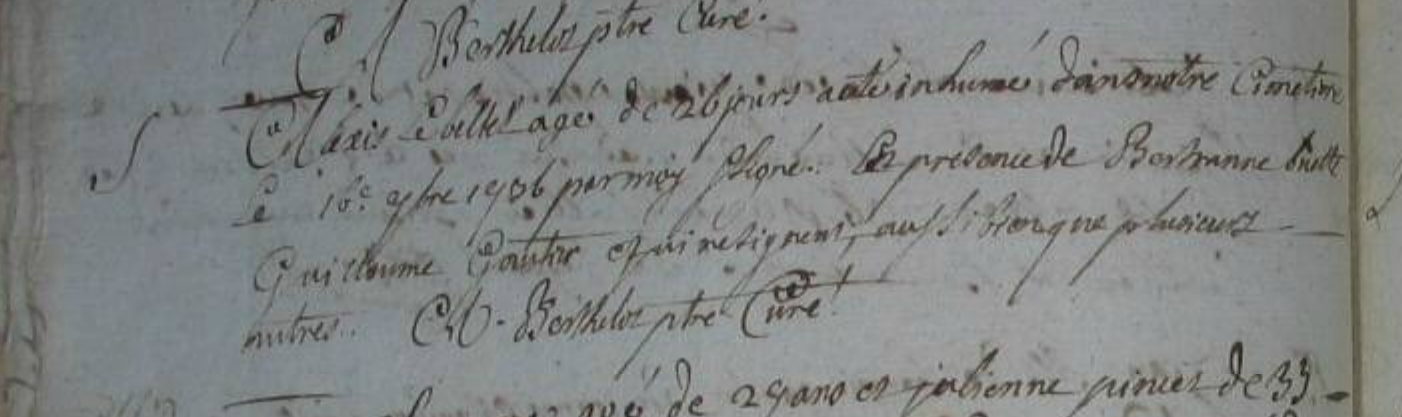 C. Berthelot ptre Curé.
Alexis agé de 26 jours a eté inhumé dans notre Cimetiere
le 16e 7bre par moy signé. En presence de
Guillaume Gautier qui ne signent, aussi bien que plusieurs
autres. Berthelot ptre Curé
agé de ans et julienne pinet de 33